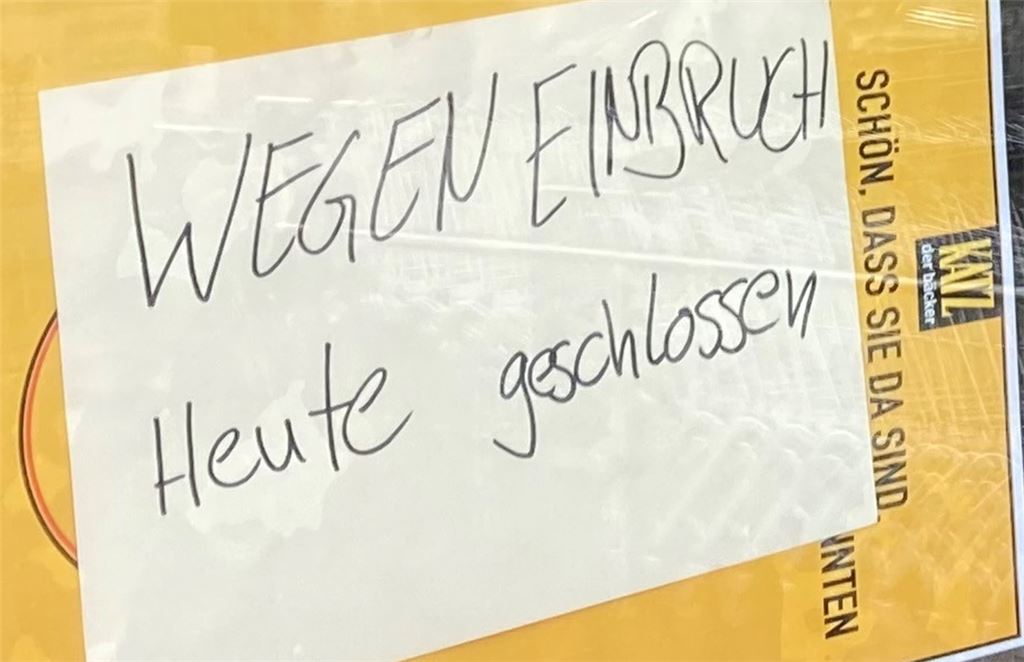 WEGEN EINBRUCH
Heute geschlossen
SCHÖN, DASS SIE DA SIND.
der bäcker